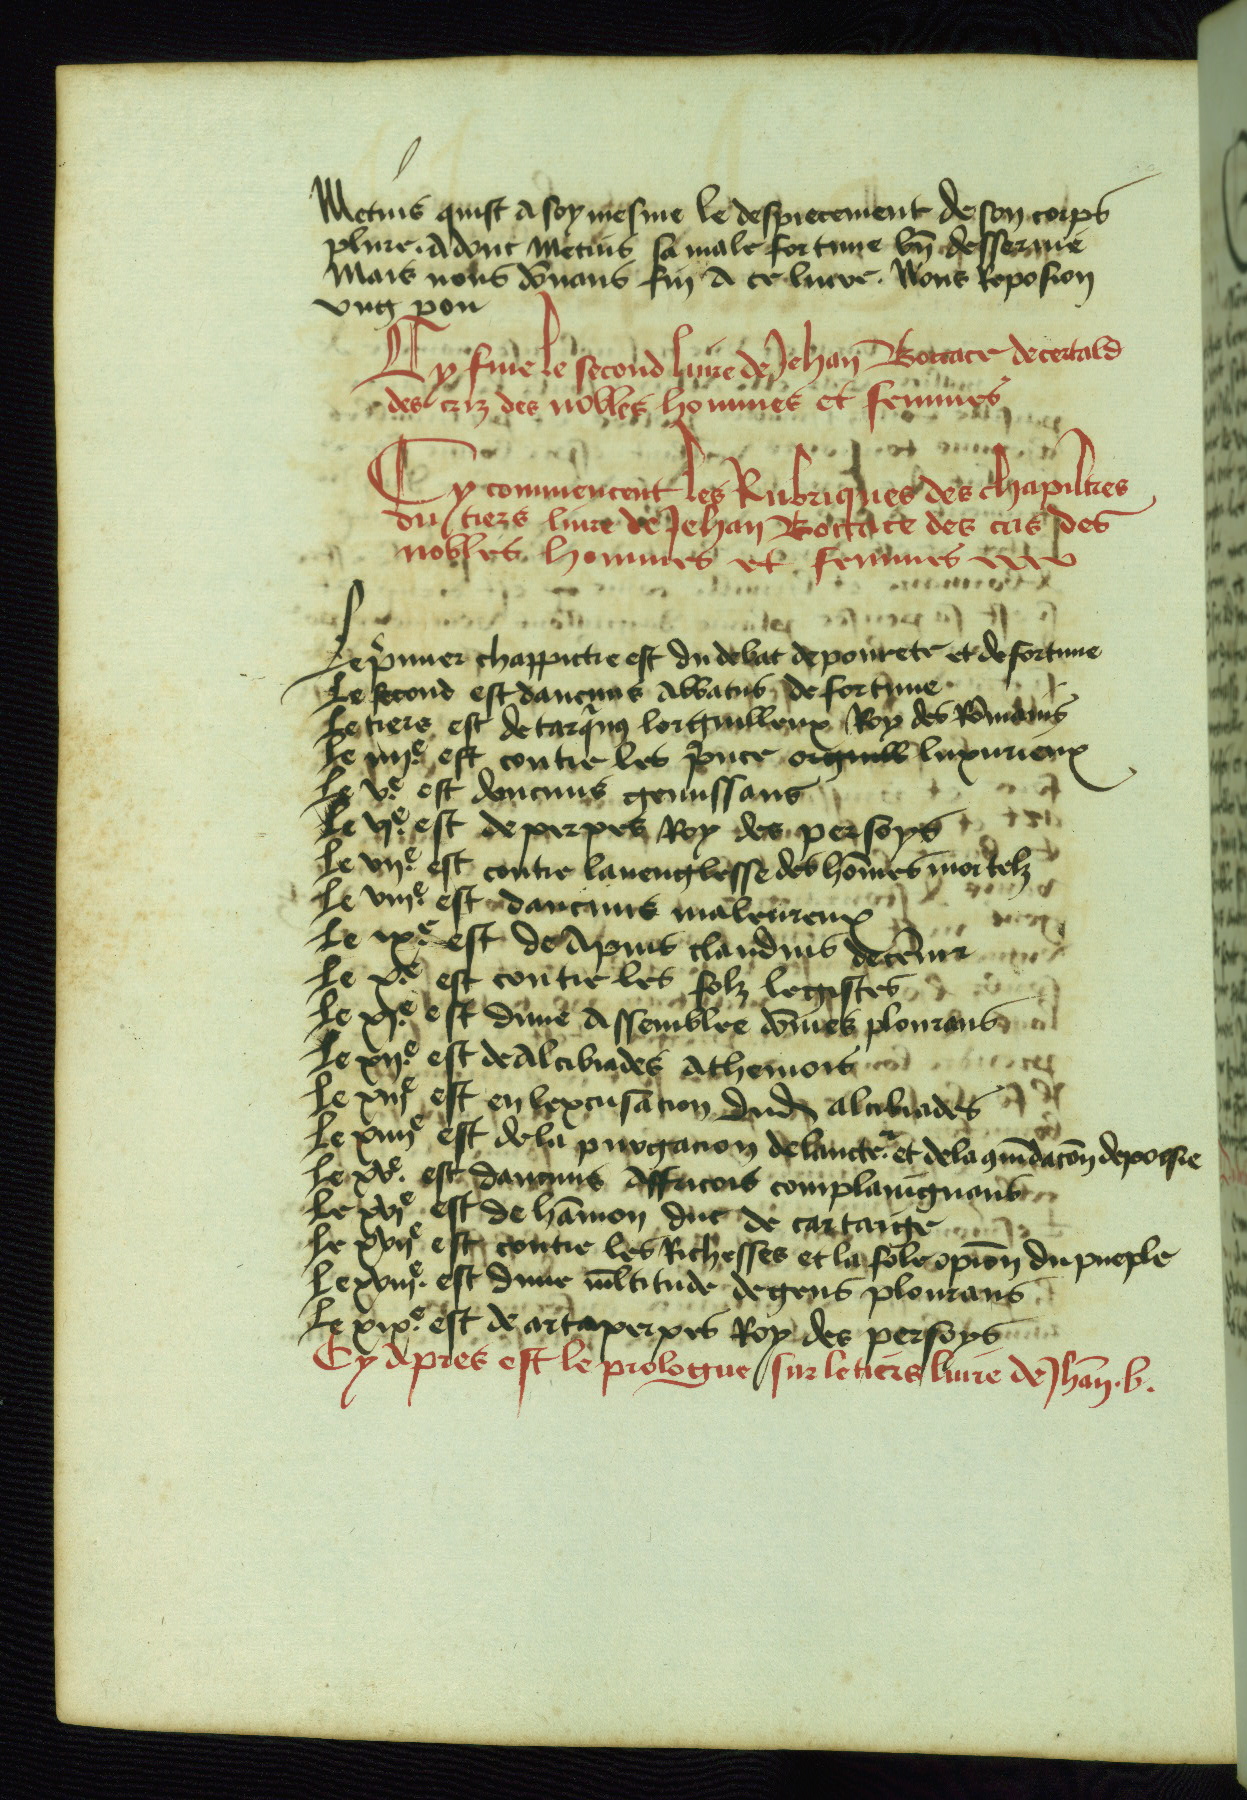 Metius quist a soy mesme le despiecement de son corps
plure. Adonc Metius sa male fortune bn̄ desseruie
Mais nous dōnans fin a ce liure. Nous Reposion
vng pou
Cy fine le second liure de Jehan Boccace de certald
des criz des nobles hommes et femmes
Cy commencent les Rubriques des chapiltres
du tiers liure de Jehan Boccace des cris des
nobles hommes et femmes
Le p̄mier chappitre est du debat de pourete et de fortune
Le second est daucuns abbatus de fortune
Le tiers est de tarqⁱnꝰ lorguilleux Roy des Rōmains
Le iiijᵉ. est contre les p̄nce orguill luxurieux
Le vᵉ. est daucuns gemissans
Le vjᵉ. est de xerxes Roy des persoys
Le vijᵉ. est contre lauenglesse des hōmes mortelz
Le viijᵉ. est daucuns maleureux
Le ixᵉ. est de Apius claudius decēuir
Le xᵉ est contre les folz legistes
Le xjᵉ. est dune assemblee dōmes plourans
Le xijᵉ. est de Alcibiades atheniois
Le xiijᵉ est en lexcusacion dud̄ alcibiades
Le xiiijᵉ est de la purgacion de laucteʳ. et de la 9mādacōn de poesie
Le xvᵉ. est daucuns Affricois complaingnans
Le xvjᵉ est de hāmon duc de cartaige
Le xvijᵉ est contre les Richesses et la fole opiōn du pueple
Le xviijᵉ. est dune ml̄titude de gens plourans
Le xixᵉ. est de artaxerxes Roy des persoys
Cy Apres est le prologue sur le tiers liure de Jhān. b.